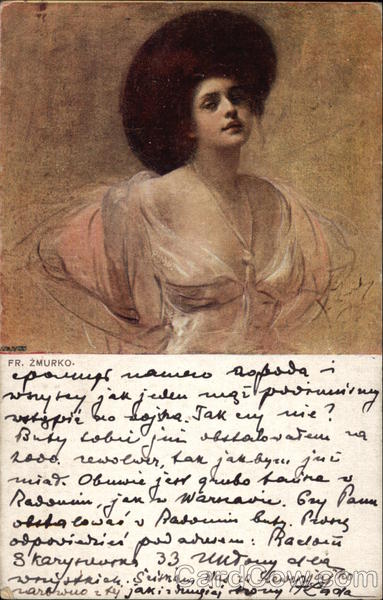 FR. ŻMURKO.
namem zgoda i
wszyscy jak jeden mąż powinniśmy
wstąpić do wojska. Tak czy nie?
Buty sobie już obstalowałem za
2000. rewolwer, tak jakbym już
miał. Obuwie jest grubo tańsze w
Radomiu, jak w Warszawie. Czy Panu
obstalować w Radomiu buty. Proszę
odpowiedzieć pod adresem: Radom
Skaryszewska 33 Ukłony dla
wszystkich.
zarówno z tej jak i drugiej strony
CardCow.com